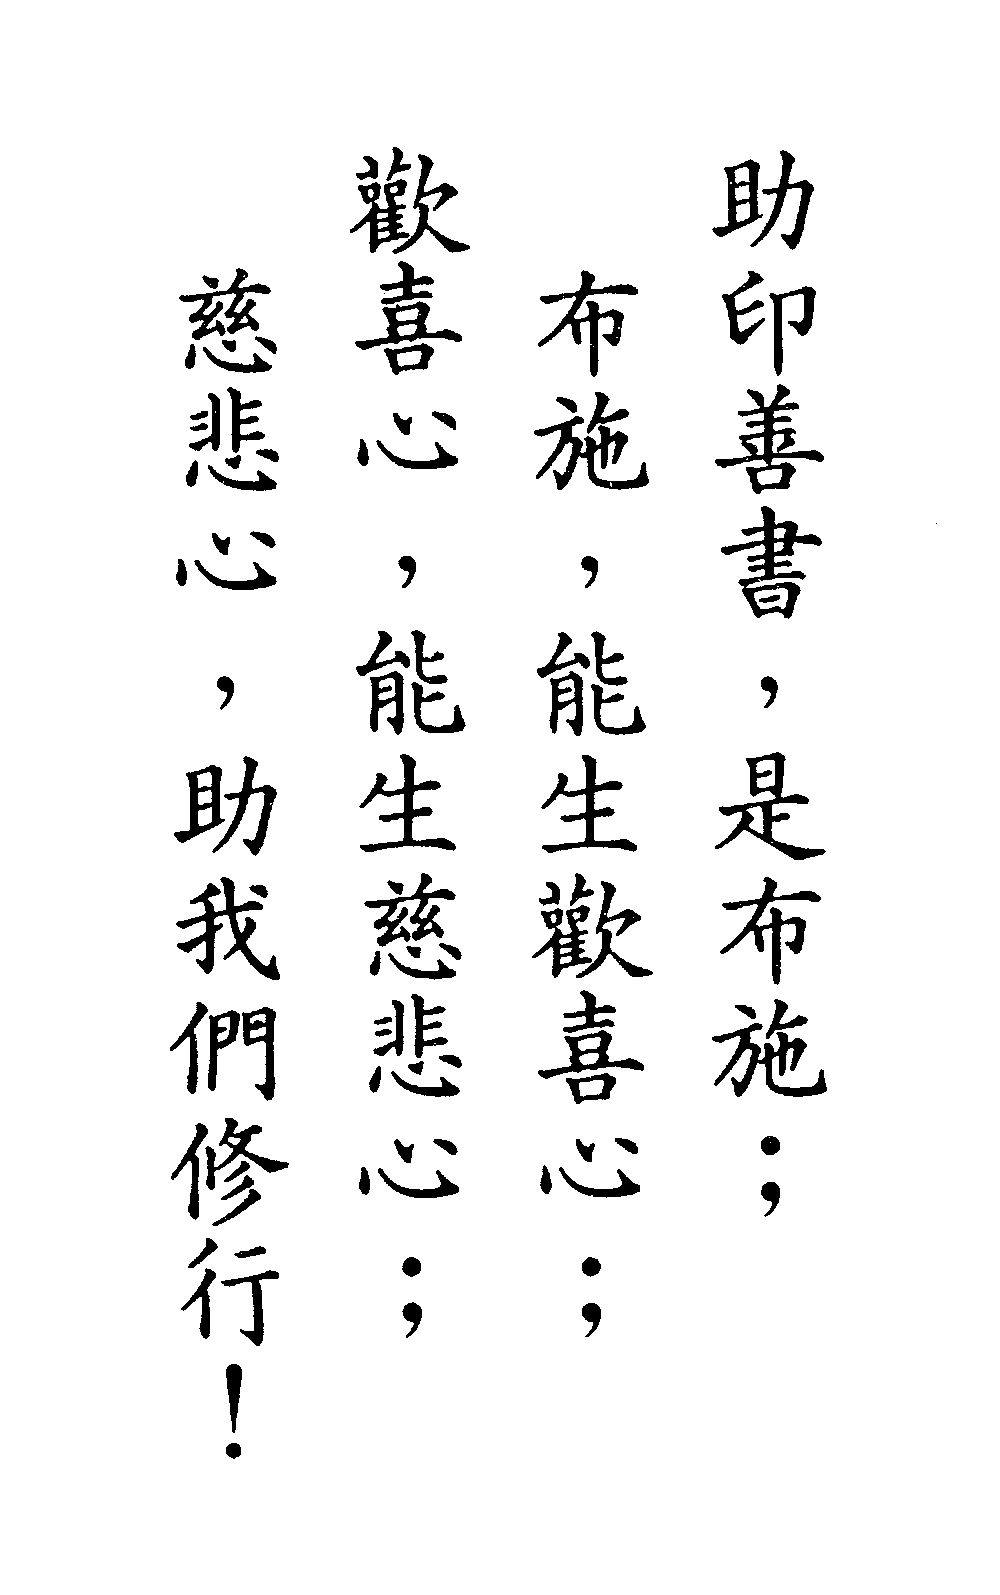 助印善書，是布施；
布施，能生歡喜心；
歡喜心，能生慈悲心；
慈悲心，助我們修行！